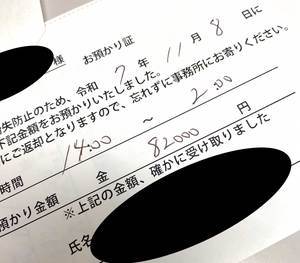 様 お預かり証
失防止のため、令和 7 年 11 月 8 日に
下記金額をお預かりいたしました。
にご返却となりますので、忘れずに事務所にお寄りください。
時間 14:00 ～ 2:00
預かり金額 金 82000 円
※上記の金額、確かに受け取りました
氏名